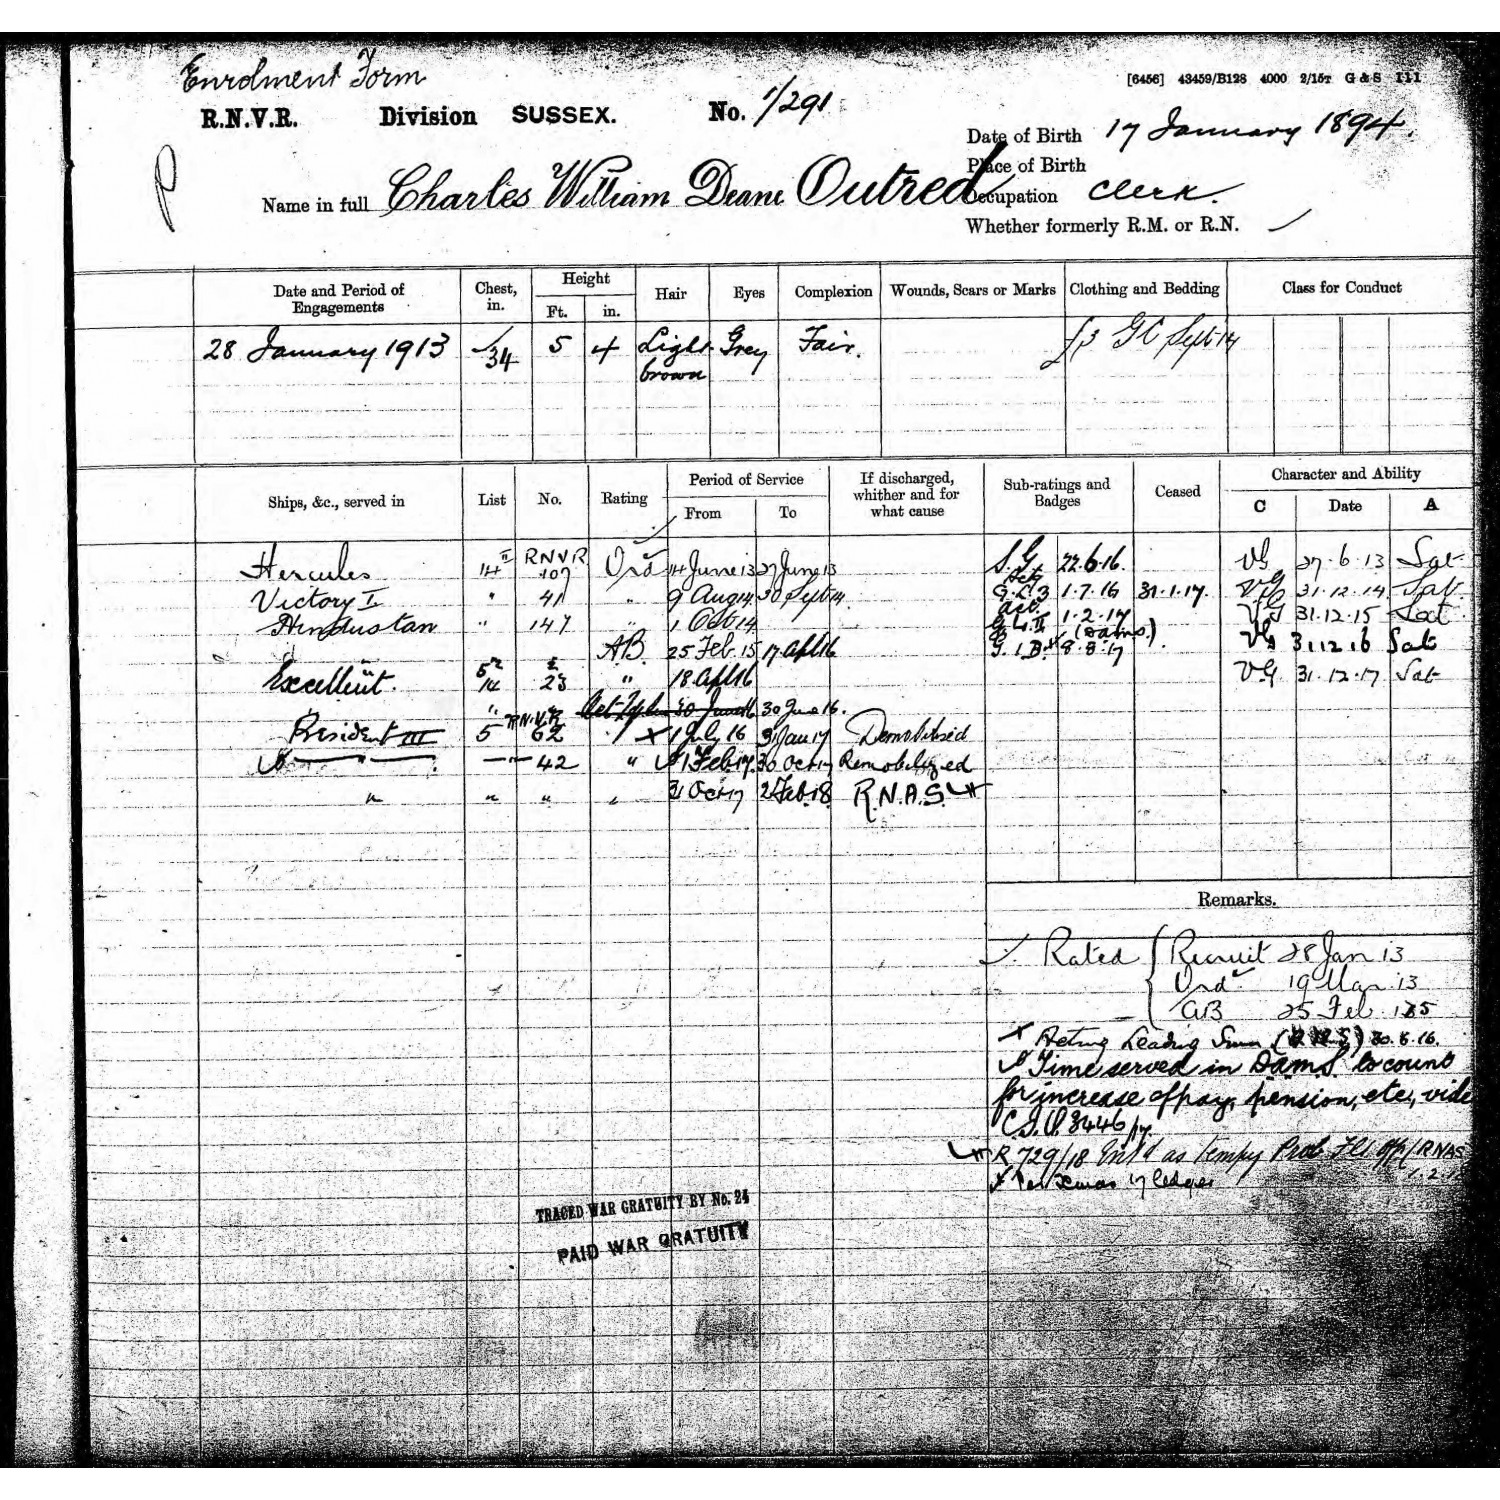 Enrolment Form
[6456] 43459/B128 4000 2/15T G & S 111
R.N.V.R. Division SUSSEX. No. 1/291
Date of Birth 17 January 1894.
Place of Birth
Name in full Charles William Deane Outred
Occupation Clerk.
Whether formerly R.M. or R.N.
Date and Period of Engagements Chest, in. Height Ft. in. Hair Eyes Complexion Wounds, Scars or Marks Clothing and Bedding Class for Conduct
28 January 1913 34 5 4 Light brown Grey Fair. £3 GC Sept 14
Ships, &c., served in List No. Rating Period of Service From To If discharged, whither and for what cause Sub-ratings and Badges Ceased Character and Ability C Date A
Hercules 14 II RNVR 107 Ord 14 June 13 27 June 13 S.G 22.6.16. VG 27.6.13 Sat
Victory I. " 41 " 9 Aug 14 30 Sept 14 1.7.16 31.1.17. VG 31.12.14 Sat
Hindustan " 147 " 1 Oct 14 1.2.17 (Dams.) VG 31.12.15 Sat
AB. 25 Feb. 15 17 Apl 16 8.8.17 VG 31.12.16 Sat
Excellent. 14 23 " 18 Apl 16 VG 31.12.17 Sat
30 June 16 30 June 16.
President III 5 R.N.V.R 62 " 1 July 16 31 Jan 17 Demobilised
" 42 " 1 Feb 17. 30 Oct 17 Remobilized
" " " " 31 Oct 17 2 Feb. 18 R.N.A.S.
Remarks.
Rated { Recruit 28 Jan 13
Ord 19 Mar 13
AB 25 Feb 15
x Acting Leading Smn 30.6.16.
Time served in D.A.M.S. to count
for increase of pay, pension, etc., vide
8446/17.
R 729/18 Ent'd as Tempy Prob Flt Offr RNAS
x Per Xmas 17 ledger
TRACED WAR GRATUITY BY No. 24
PAID WAR GRATUITY